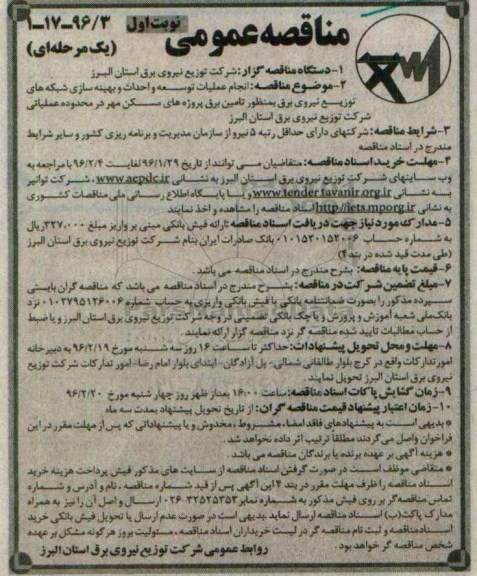 مناقصه عمومی
نوبت اول
۱-۱۷-۹۶/۳
(یک مرحله‌ای)
۱-دستگاه مناقصه گزار: شرکت توزیع نیروی برق استان البرز
۲-موضوع مناقصه: انجام عملیات توسعه و احداث و بهینه سازی شبکه های
توزیع نیروی برق بمنظور تامین برق پروژه های مسکن مهر در محدوده عملیاتی
شرکت توزیع نیروی برق استان البرز
۳-شرایط مناقصه: شرکتهای دارای حداقل رتبه ۵ نیرو از سازمان مدیریت و برنامه ریزی کشور و سایر شرایط
مندرج در اسناد مناقصه
۴-مهلت خرید اسناد مناقصه: متقاضیان می توانند از تاریخ ۹۶/۱/۲۹ لغایت ۹۶/۲/۴ با مراجعه به
وب سایتهای شرکت توزیع نیروی برق استان البرز به نشانی www.acpdc.ir ، شرکت توانیر
به نشانی www.tender.tavanir.org.ir و یا پایگاه اطلاع رسانی ملی مناقصات کشوری
به نشانی http://iets.mporg.ir اسناد مناقصه را مشاهده و اخذ نمایند
۵-مدارک مورد نیاز جهت دریافت اسناد مناقصه: ارائه فیش بانکی مبنی بر واریز مبلغ ۳۲۷.۰۰۰ ریال
به شماره حساب ۰۱۰۱۵۲۰۱۵۲۰۰۶ بانک صادرات ایران بنام شرکت توزیع نیروی برق استان البرز
(طی مدت قید شده در بند۴)
۶-قیمت پایه مناقصه: بشرح مندرج در اسناد مناقصه می باشد.
۷-مبلغ تضمین شرکت در مناقصه: بشرح مندرج در اسناد مناقصه می باشد که مناقصه گران بایستی
سپرده مذکور را بصورت ضمانتنامه بانکی یا فیش بانکی واریزی به حساب شماره ۰۱۰۲۷۹۵۱۲۶۰۰۶ نزد
بانک ملی شعبه آموزش و پرورش و یا چک بانکی تضمینی در وجه شرکت توزیع نیروی برق استان البرز و یا ضبط
از حساب مطالبات تایید شده مناقصه گر نزد مناقصه گزار ارائه نمایند.
۸-مهلت و محل تحویل پیشنهادات: حداکثر تا ساعت ۱۶ روز سه شنبه مورخ ۹۶/۲/۱۹ به دبیرخانه
امور تدارکات واقع در کرج بلوار طالقانی شمالی- پل آزادگان- ابتدای بلوار امام رضا- امور تدارکات شرکت توزیع
نیروی برق استان البرز تحویل نمایند.
۹-زمان گشایش پاکات اسناد مناقصه: ساعت ۱۶:۰۰ بعداز ظهر روز چهار شنبه مورخ ۹۶/۲/۲۰
۱۰-زمان اعتبار پیشنهاد قیمت مناقصه گران: از تاریخ تحویل پیشنهاد بمدت سه ماه
* بدیهی است به پیشنهادهای فاقد امضا، مشروط ، مخدوش و یا پیشنهاداتی که پس از مهلت مقرر در این
فراخوان واصل می گردند مطلقا ترتیب اثر داده نخواهد شد.
* هزینه آگهی بر عهده برنده یا برندگان مناقصه می باشد.
* متقاضی موظف است در صورت گرفتن اسناد مناقصه از سایت های مذکور فیش پرداخت هزینه خرید
اسناد مناقصه را ظرف مهلت مقرر در بند ۴ این آگهی پس از قید شماره مناقصه ، نام و آدرس و شماره
تماس مناقصه گر بر روی فیش مذکور به شماره نمابر ۳۲۵۲۵۳۵۳-۰۲۶ ارسال و اصل آن را نیز به همراه
مدارک پاکت(ب) اسناد مناقصه ارسال نماید .بدیهی است در صورت عدم ارسال یا تحویل فیش بانکی خرید
اسنادمناقصه و ثبت نام مناقصه گر در لیست خریداران اسناد مناقصه ، مسئولیت بروز هرگونه مشکل بر عهده
شخص مناقصه گر خواهد بود.
روابط عمومی شرکت توزیع نیروی برق استان البرز